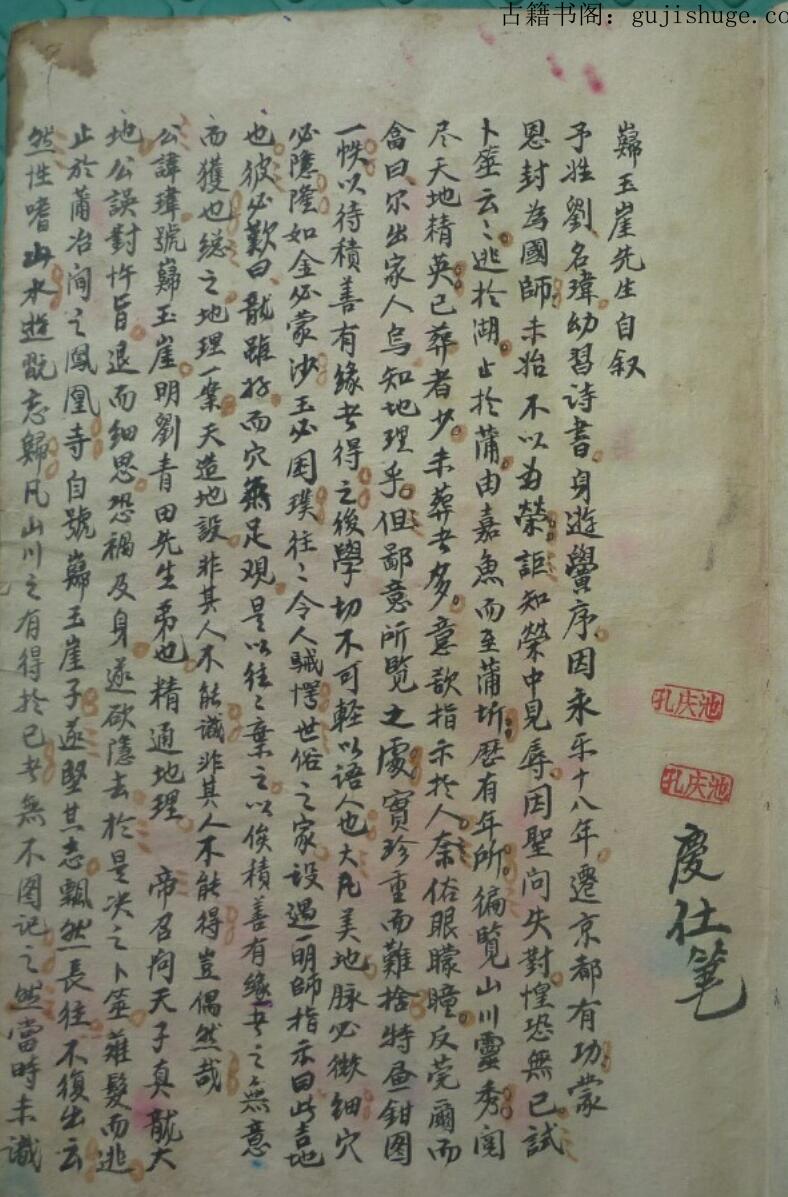 古籍书阁：gujishuge.co
孔庆池
孔庆池
慶仕笔
巋玉崖先生自叙
予姓劉名瑋幼習诗書身遊黌序因永乐十八年遷京都有功蒙
恩封為國師未始不以为榮詎知榮中見辱因聖问失對惶恐無已試
卜筮云〻逃於湖止於蒲由嘉魚而至蒲圻歷有年所徧覧山川靈秀閱
尽天地精英已葬者少未葬者多意欲指示於人奈俗眼矇瞳反莞爾而
畣曰尔出家人烏知地理乎但鄙意所覧之處寳珍重而難捨特画鉗图
一帙以待積善有緣者得之後學切不可軽以語人也大凡美地脉必微细穴
必隱隆如金必蒙沙玉必困璞往〻令人駴愕世俗之家設遇一明師指示曰此吉地
也彼必歎曰龍雖好而穴無足观是以往〻棄之以俟積善有缘者之無意
而獲也総之地理一案天造地設非其人不能識非其人不能得豈偶然哉
公諱瑋號巋玉崖明劉青田先生弟也精通地理 帝召问天子真龍大
地公誤對忤旨退而细思恐禍及身遂欲隱去於是决之卜筮薙髮而逃
止於蒲冶间之鳳凰寺自號巋玉崖子遂堅其志飄然長往不復出云
然性嗜山水遊翫忘歸凡山川之有得於己者無不图记之然當時未識